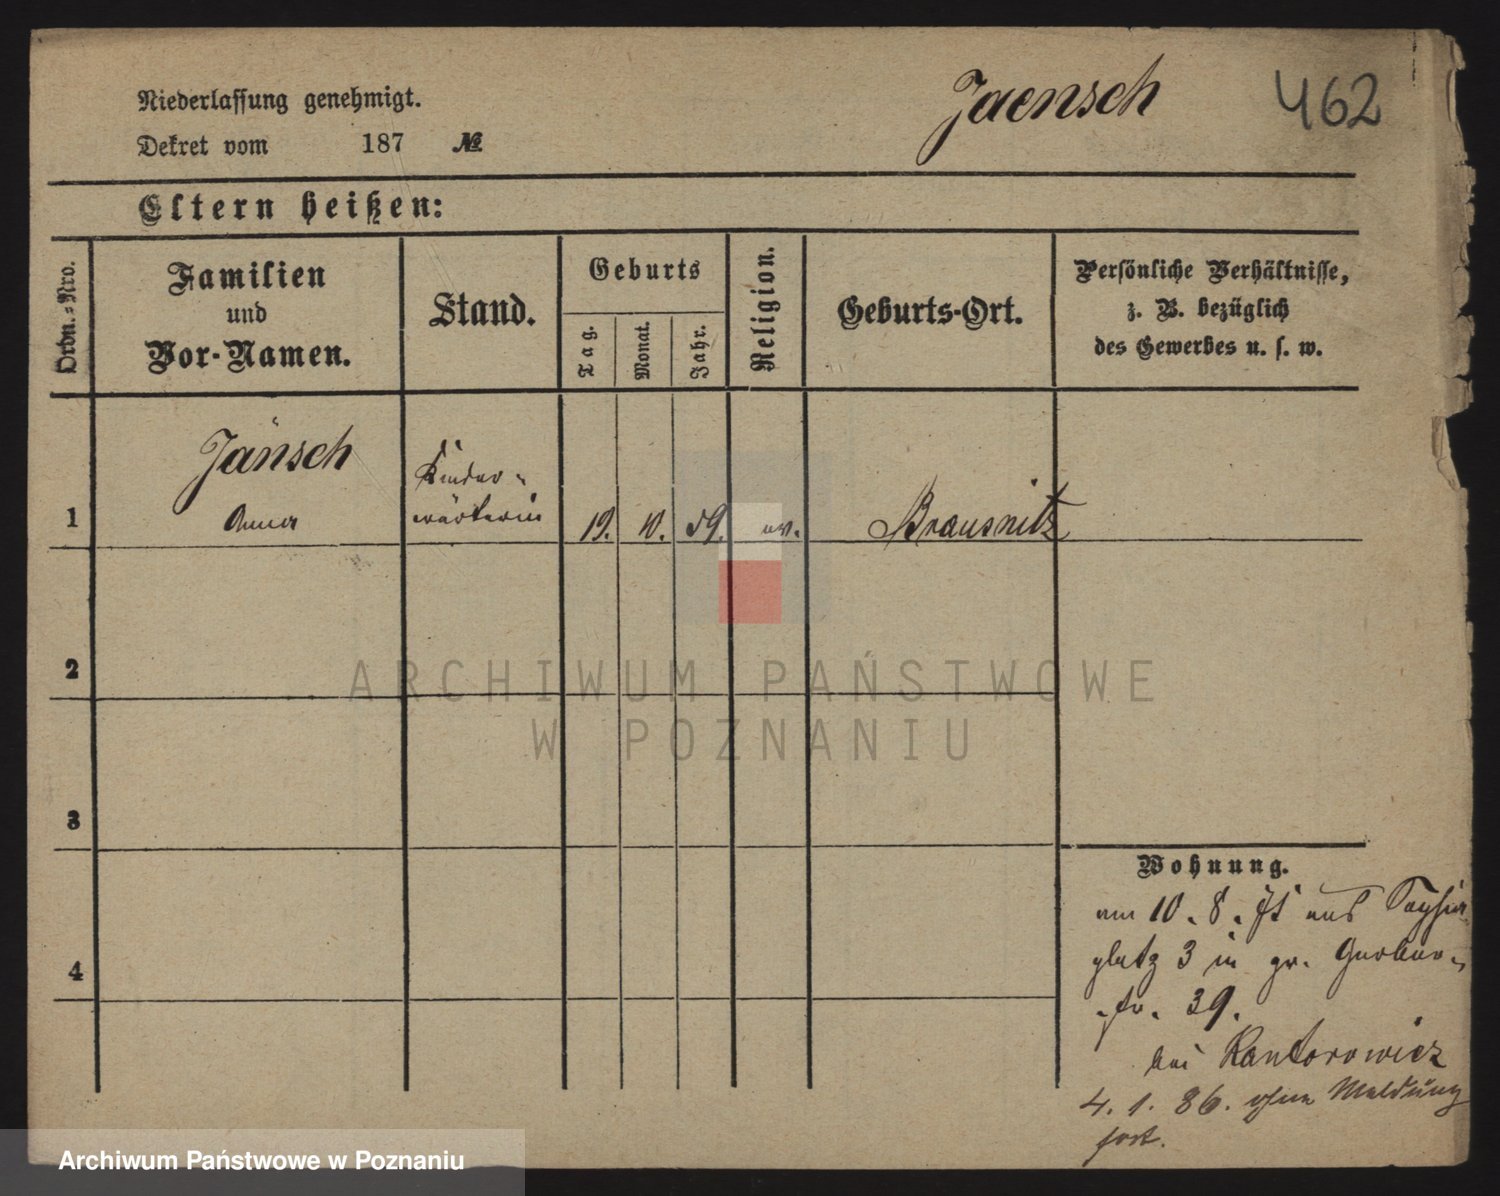 Niederlassung genehmigt.
Jaensch
462
Dekret vom 187 №
Eltern heißen:
Ordn.-Nro.
Familien
und
Vor-Namen.
Stand.
Geburts
Tag.
Monat.
Jahr.
Religion.
Geburts-Ort.
Persönliche Verhältnisse,
z. B. bezüglich
des Gewerbes u. s. w.
1
Jänsch
Anna
Kinder-
wärterin
19. 10. 59. ev. Brausnitz
2
ARCHIWUM PAŃSTWOWE
W POZNANIU
3
Wohnung.
am 10. 8. aus
platz 3 in gr. Gerber-
str. 39.
bei Kantorowicz
4
4. 1. 86. ohne Meldung
fort.
Archiwum Państwowe w Poznaniu